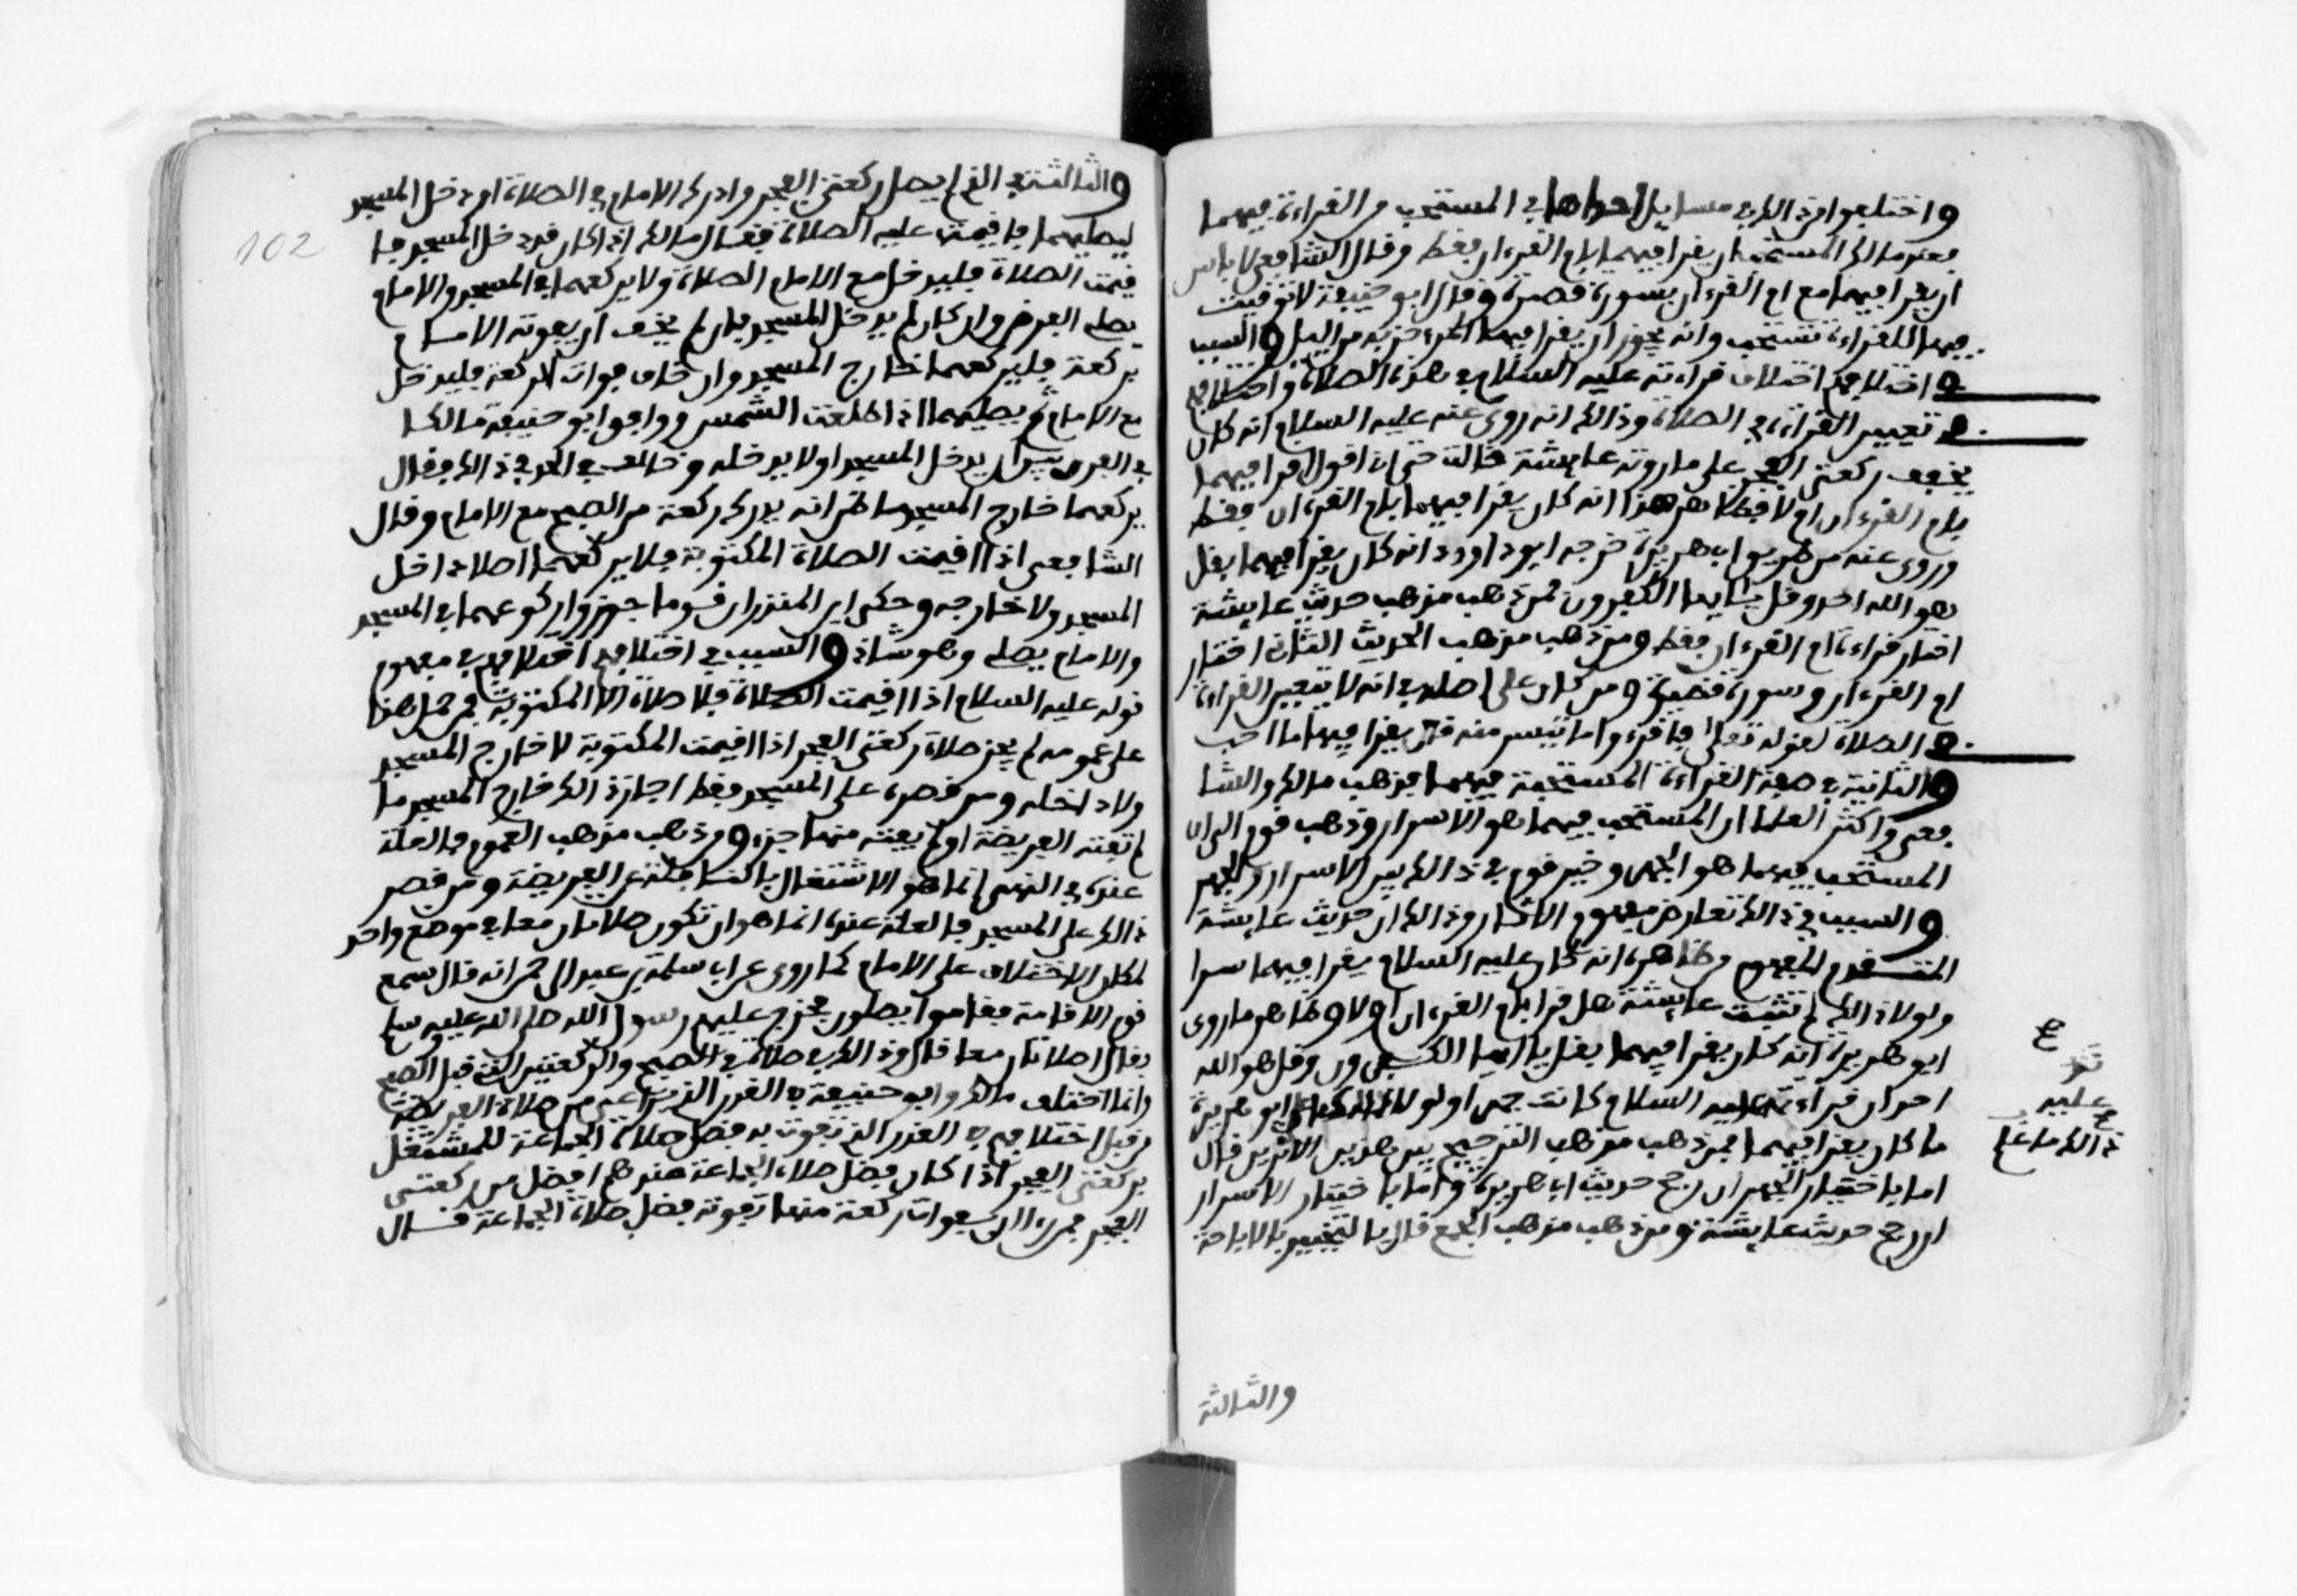 واختلفوا من ذلك في مسايل احداها في المستحب من القراءة فيهما
فعند مالك المستحب ان يقرا فيهما بام القرءان فقط وقال الشافعي لا باس
ان يقرا فيهما مع ام القرءان بسورة قصيرة وقال ابو حنيفة لا توقيت
فيهما للقراءة تستحب وانه يجوز ان يقرا فيهما المرء حزبه من الليل والسبب
في اختلافهم اختلاف قراءته عليه السلام في هذه الصلاة واختلافهم
في تعيين القراءة في الصلاة وذالك انه روي عنه عليه السلام انه كان
يخفف ركعتي الفجر على ما روته عايشة قالت حتى اني اقول اقرا فيهما
بام القرءان ام لا فظاهر هذا انه كان يقرا فيهما بام القرءان فقط
وروي عنه من طريق ابي هريرة خرجه ابو داوود انه كان يقرا فيهما بقل
هو الله احد وقل يا ايها الكفرون فمن ذهب مذهب حديث عايشة
اختار قراءة ام القرءان فقط ومن ذهب مذهب الحديث الثاني اختار
ام القرءان وسورة قصيرة ومن كان على اصله في انه لا تتعين القراءة
في الصلاة لقوله تعلى فاقرءوا ما تيسر منه قال يقرا فيهما ما احب
والثانية في صفة القراءة المستحبة فيهما فذهب مالك والشا
فعي واكثر العلما ان المستحب فيهما هو الاسرار وذهب قوم الى ان
المستحب فيهما هو الجهر وخير قوم في ذالك بين الاسرار والجهر
والسبب في ذالك تعارض مفهوم الاثار وذالك ان حديث عايشة
المتقدم المفهوم من ظاهره انه كان عليه السلام يقرا فيهما سرا
ولولا ذالك لم تشك عايشة هل قرا بام القرءان ام لا وظاهر ما روى
ابو هريرة انه كان يقرا فيهما بقل يا ايها الكفرون وقل هو الله
احد ان قراءته عليه السلام كانت جهرا ولولا ذالك ما علم ابو هريرة
ما كان يقرا فيهما فمن ذهب مذهب الترجيح بين هذين الاثرين قال
اما باختيار الجهر ان رجح حديث ابي هريرة واما باختيار الاسرار
ان رجح حديث عايشة ومن ذهب مذهب الجمع قال بالتخيير بالاباحة
عليه
ذالك ما علم
والثالثة
102
والثالثة في الذي لم يصل ركعتي الفجر وادرك الامام في الصلاة او دخل المسجد
ليصليهما فاقيمت عليه الصلاة فقال مالك اذا كان قد دخل المسجد فا
قيمت الصلاة فليدخل مع الامام الصلاة ولا يركعهما في المسجد والامام
يصلي الفرض وان كان لم يدخل المسجد فان لم يخف ان يفوته الامام
بركعة فليركعهما خارج المسجد وان خاف فوات الركعة فليدخل
مع الامام ثم يصليهما اذا طلعت الشمس ووافق ابو حنيفة مالكا
في الفرق بين ان يدخل المسجد او لا يدخله وخالفه في الحد في ذالك فقال
يركعهما خارج المسجد ما ظن انه يدرك ركعة من الصبح مع الامام وقال
الشافعي اذا اقيمت الصلاة المكتوبة فلا يركعهما اصلا داخل
المسجد ولا خارجه وحكى ابن المنذر ان قوما جوزوا ركوعهما في المسجد
والامام يصلي وهو شاذ والسبب في اختلافهم اختلافهم في مفهوم
قوله عليه السلام اذا اقيمت الصلاة فلا صلاة الا المكتوبة فمن حمل هذا
على عمومه لم يجز صلاة ركعتي الفجر اذا اقيمت المكتوبة لا خارج المسجد
ولا داخله ومن قصره على المسجد فقط اجاز ذالك خارج المسجد ما
لم تفته الفريضة او لم يفته منها جزء ومن ذهب مذهب العموم فالعلة
عنده في النهي انما هو الاشتغال بالنافلة عن الفريضة ومن قصر
ذالك على المسجد فالعلة عنده انما هو ان تكون صلاتان معا في موضع واحد
لمكان الاختلاف على الامام كما روي عن ابي سلمة بن عبد الرحمن انه قال سمع
قوم الاقامة فقاموا يصلون فخرج عليهم رسول الله صلى الله عليه وسلم
فقال اصلاتان معا قال وذالك في صلاة الصبح والركعتين التي قبل الصبح
وانما اختلف مالك وابو حنيفة في القدر الذي يراعى من صلاة الفريضة
من قبل اختلافهم في القدر الذي يفوت به فضل صلاة الجماعة للمشتغل
بركعتي الفجر اذا كان فضل صلاة الجماعة عندهم افضل من ركعتي
الفجر فمن راى ان بفوات ركعة منها يفوته فضل صلاة الجماعة قال